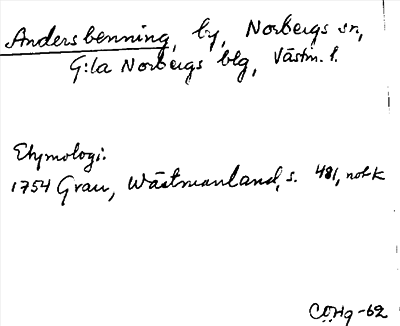 Andersbenning, by, Norbergs sn,
G:la Norbergs blg, Västm. l.
Etymologi:
1754 Grau, Wästmanland, s. 481, not k
COHg -62